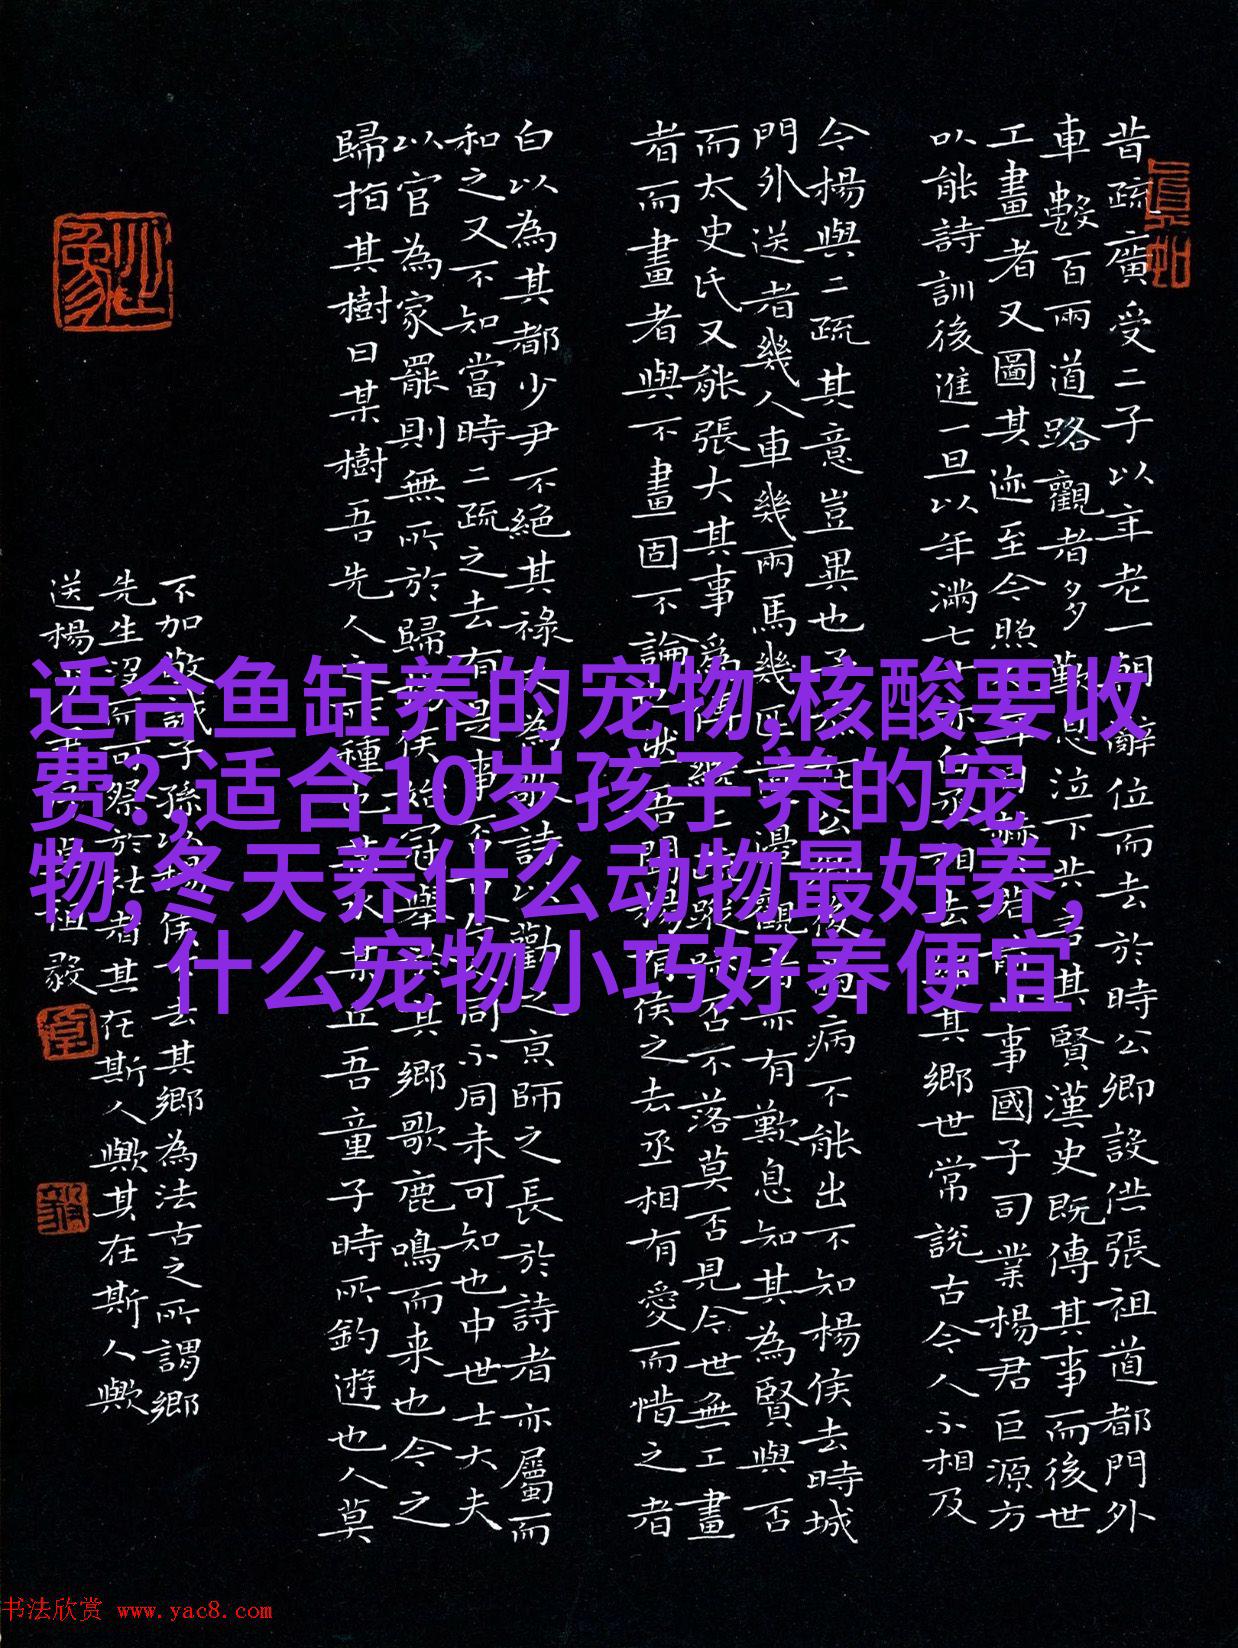 昔疏廣受二子以年老一朝辭位而去於時公卿設供張祖道都門外
車數百兩道路觀者多歎息泣下共言其賢漢史既傳其事而後世
工畫者又圖其迹至今照人耳目赫赫若前日事國子司業楊君巨源方
以能詩訓後進一旦以年滿七十亦白丞相去歸其鄉世常說古今人不相及
今楊與二疏其意豈異也予忝在公卿後遇病不能出不知楊侯去時城
門外送者幾人車幾兩馬幾匹道邊觀者亦有歎息知其為賢與否
而太史氏又能張大其事為傳繼二疏蹤跡否不落莫否見今世無工畫
者而畫者與不畫固不論也然吾聞楊侯之去丞相有愛而惜之者
白以為其都少尹不絕其祿又為歌詩以勸之京師之長於詩者亦屬而
和之又不知當時二疏之去有是事否古今人同不同未可知也中世士大夫
以官為家罷則無所於歸楊侯始冠舉於其鄉歌鹿鳴而来也今之
歸指其樹曰某樹吾先人之所種也某水某丘吾童子時所釣遊也人莫
不加敬誡子孫以楊侯不去其鄉為法古之所謂鄉
先生沒而可祭於社者其在斯人歟其在斯人歟
送楊少尹序 祖毅
适合鱼缸养的宠物,核酸要收
费?,适合10岁孩子养的宠
物,冬天养什么动物最好养,
什么宠物小巧好养便宜
书法欣赏 www.yac8.com